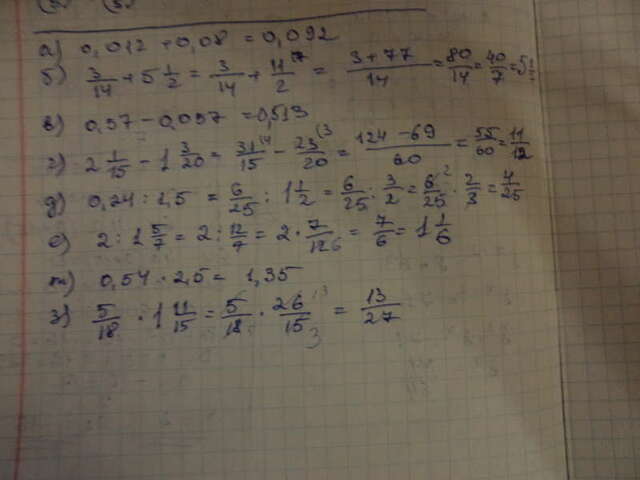 а) 0,012 + 0,08 = 0,092
б) 3/14 + 5 1/2 = 3/14 + 11/2 ⁷ = (3+77)/14 = 80/14 = 40/7 = 5
в) 0,57 - 0,057 = 0,513
г) 2 1/15 - 1 3/20 = 31/15 ⁽⁴ - 23/20 ⁽³ = (124 - 69)/60 = 55/60 = 11/12
д) 0,24 : 1,5 = 6/25 : 1 1/2 = 6/25 : 3/2 = 6/25 ² · 2/3 = 4/25
е) 2 : 1 5/7 = 2 : 12/7 = 2 · 7/12 6 = 7/6 = 1 1/6
ж) 0,54 · 2,5 = 1,35
з) 5/18 · 1 11/15 = 5/18 · 26/15 ¹³ 3 = 13/27